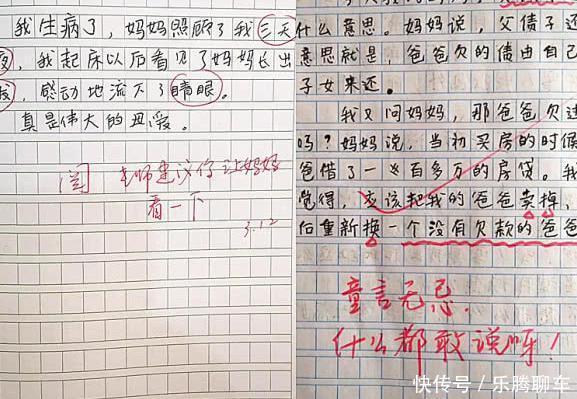 我生病了，妈妈照顾了我三天
夜，我起床以后看见了妈妈长出
发，感动地流下了睛眼。
真是伟大的母爱。
阅 老师建议你让妈妈
看一下
3.12
什么意思。妈妈说，父债子还
意思就是，爸爸欠的债由自己
子女来还。
我又问妈妈，那爸爸欠过
吗？妈妈说，当初买房的时候
爸借了一百多万的房贷。我
觉得，应该把我的爸爸卖掉，
后重新换一个没有欠款的爸爸
童言无忌，
什么都敢说呀！
快传号／乐腾聊车